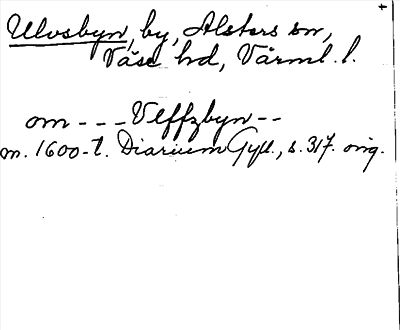 Ulvsbyn, by, Alsters sn,
Väse hd, Värml. l.
om - - - Vlffzbyn - -
m. 1600-t. Diarium Gyll., s. 317. orig.